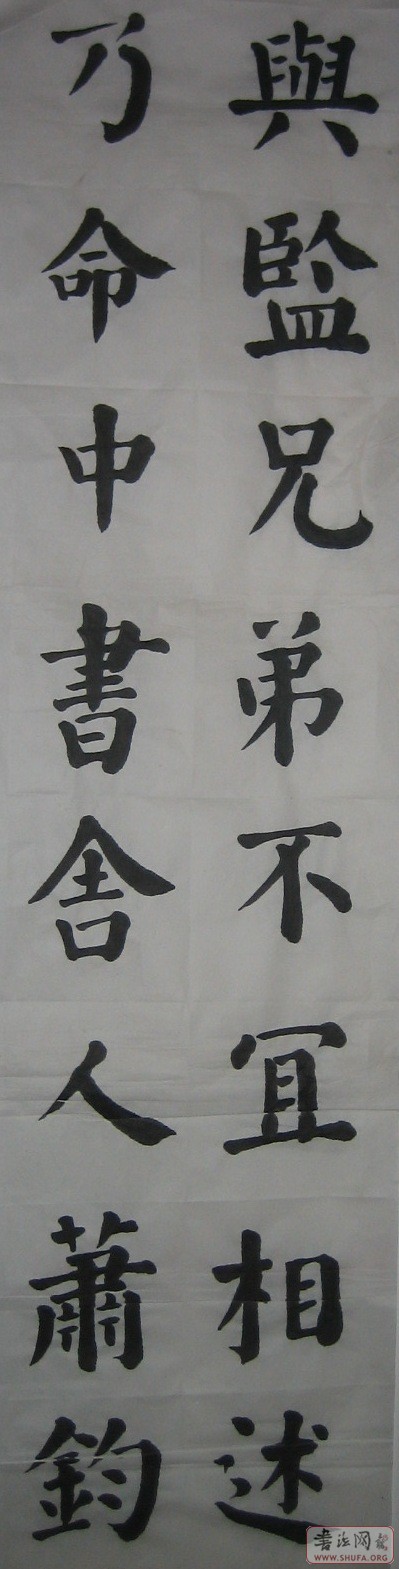 與監兄弟不冝相述
乃命中書舍人蕭鈞
書法网
WWW.SHUFA.ORG